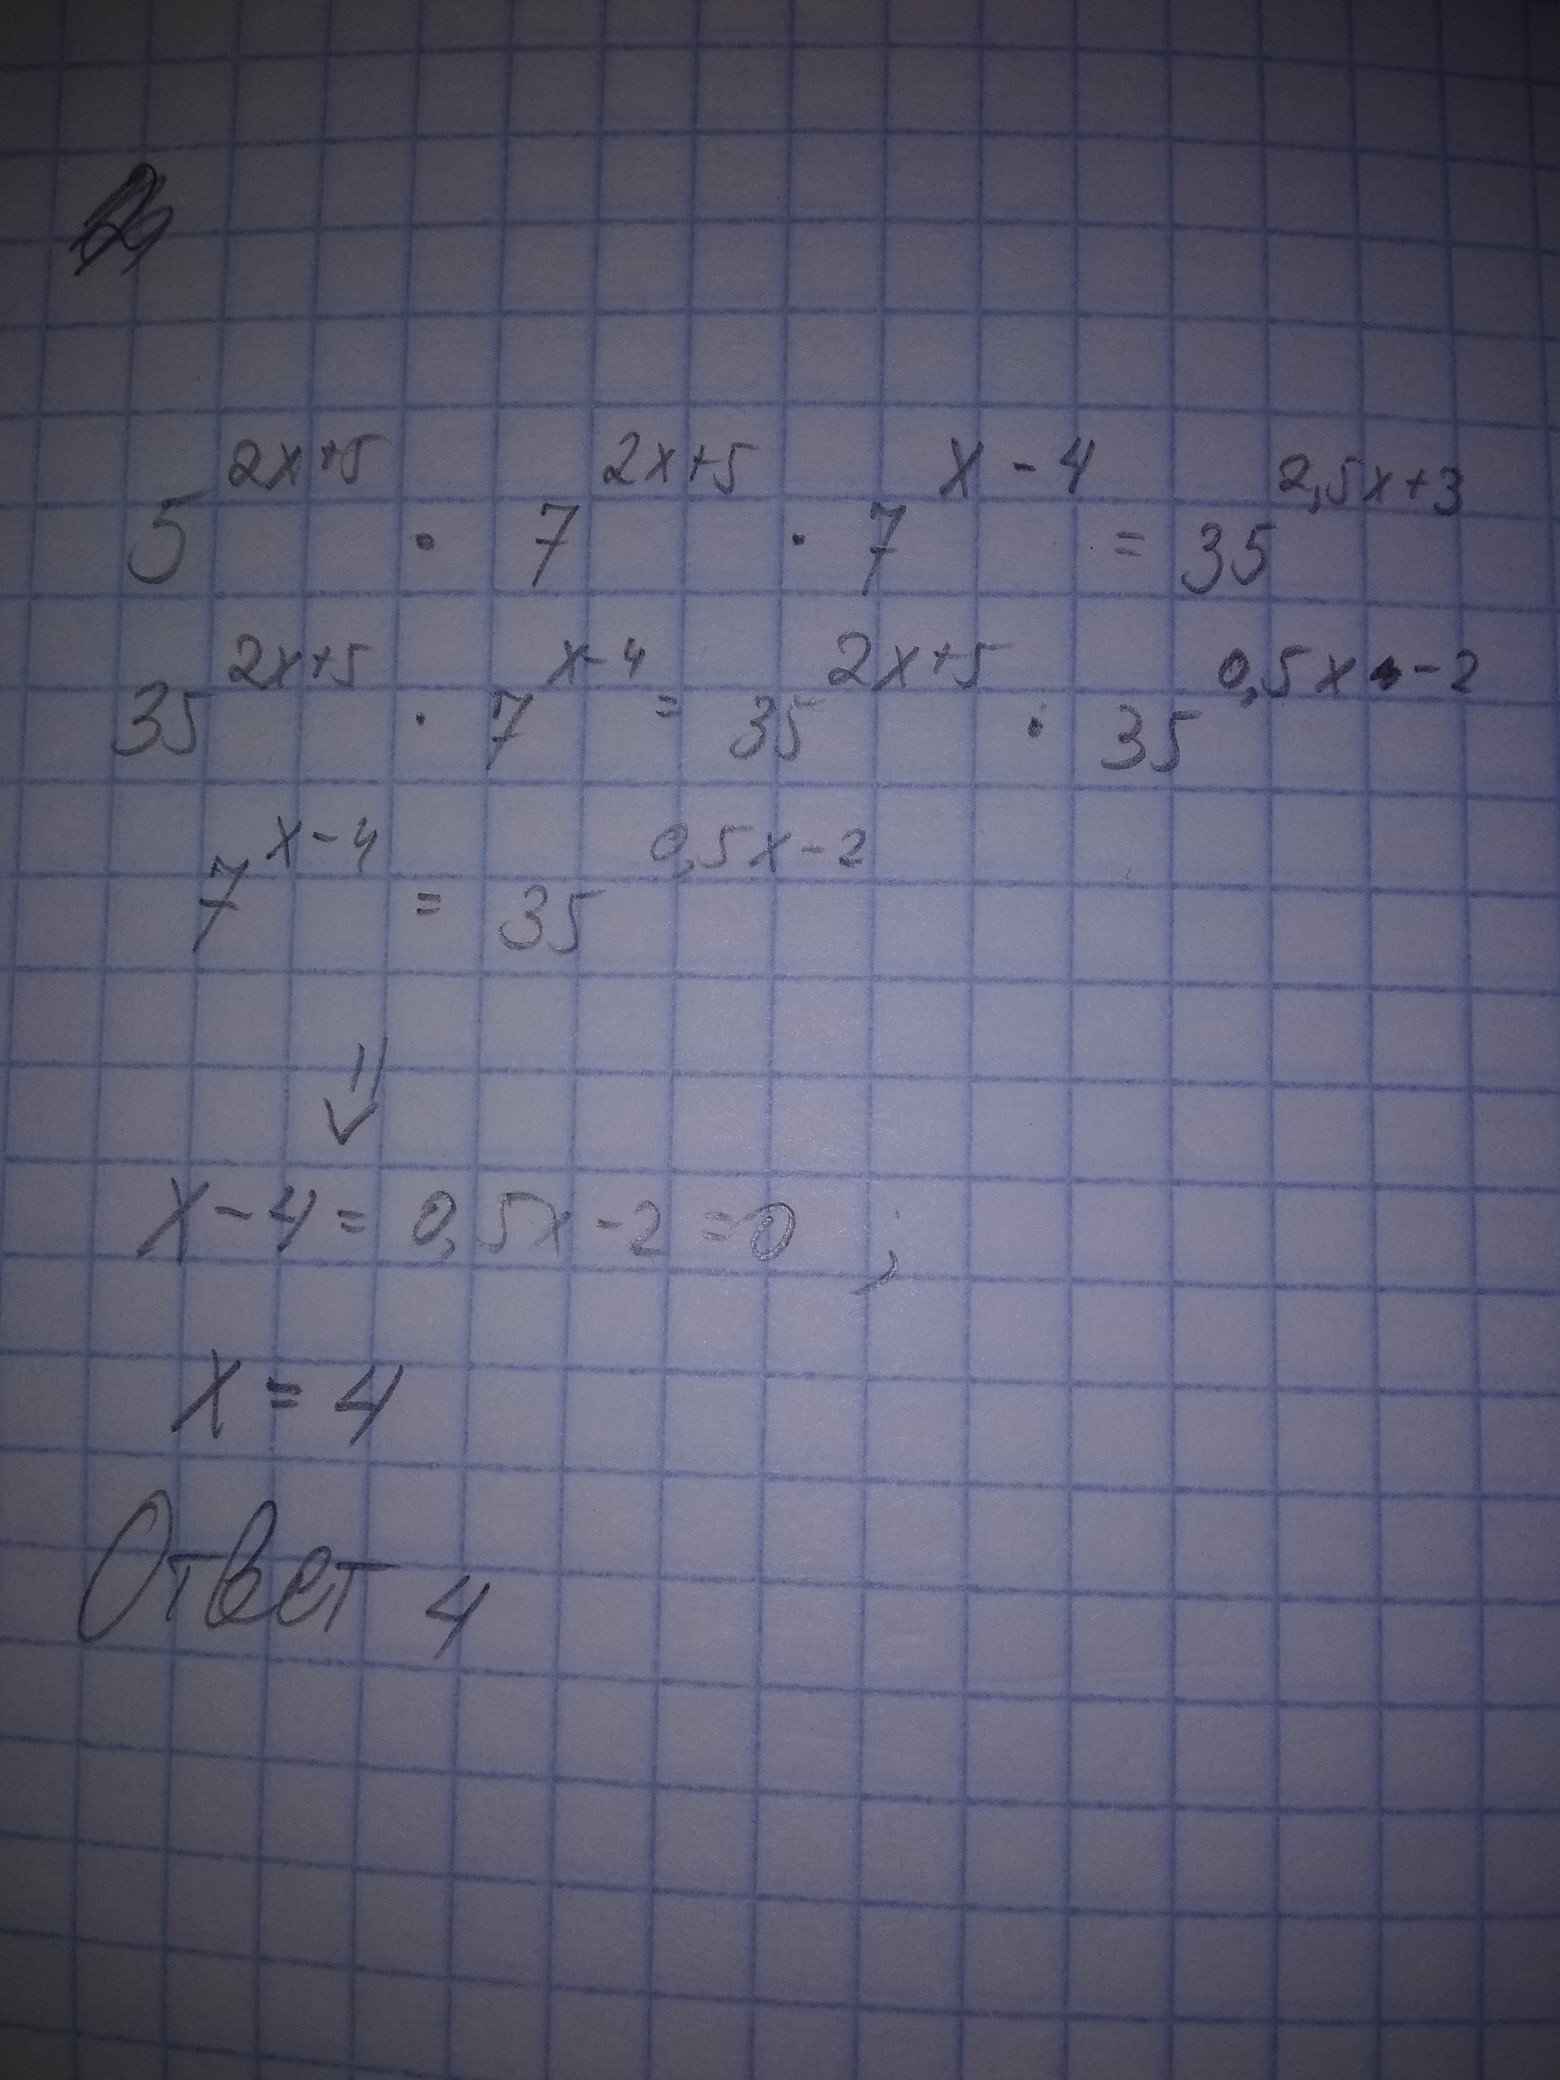 5^{2x+5} · 7^{2x+5} · 7^{x-4} = 35^{2,5x+3}
35^{2x+5} · 7^{x-4} = 35^{2x+5} · 35^{0,5x-2}
7^{x-4} = 35^{0,5x-2}
⇓
x-4 = 0,5x-2 =0 ;
x = 4
Ответ 4